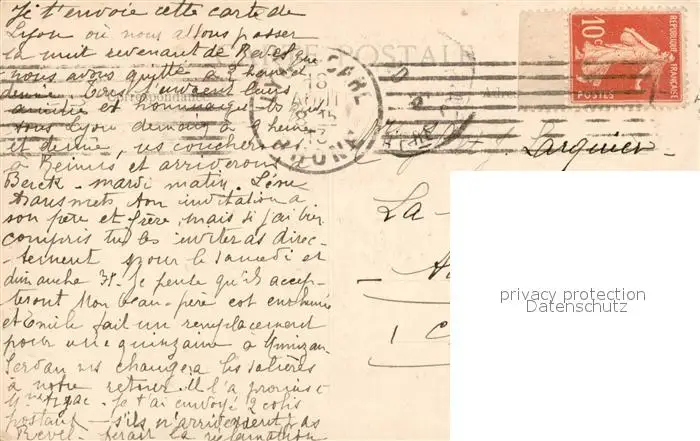 Je t'envoie cette carte de
Lyon où nous allons passer
la nuit revenant de Revel que
nous avons quitté à 2 heures et
demie. Tous t'envoient leurs
amitiés et hommages
Lyon demain à 9 heures
et demie, ns coucherons
à Reims et arriverons
Berck mardi matin. Lène
transmets ton invitation à
son père et frère, mais si j'ai bien
compris tu les inviteras direc-
tement pour le samedi et
dimanche 31. Je pense qu'ils accep-
teront Mon beau-père est enrhumé
et Emile fait un remplacement
pour une quinzaine à Mimizan.
ns changera les salières
à notre retour. Il l'a promis à
Je t'ai envoyé 2 colis
postaux - s'ils n'arrivent pas
Revel ferait la réclamation
CARTE POSTALE
Correspondance
GARE
RHONE
10c
REPUBLIQUE FRANÇAISE
POSTES
Larquier
La
1 C
privacy protection
Datenschutz